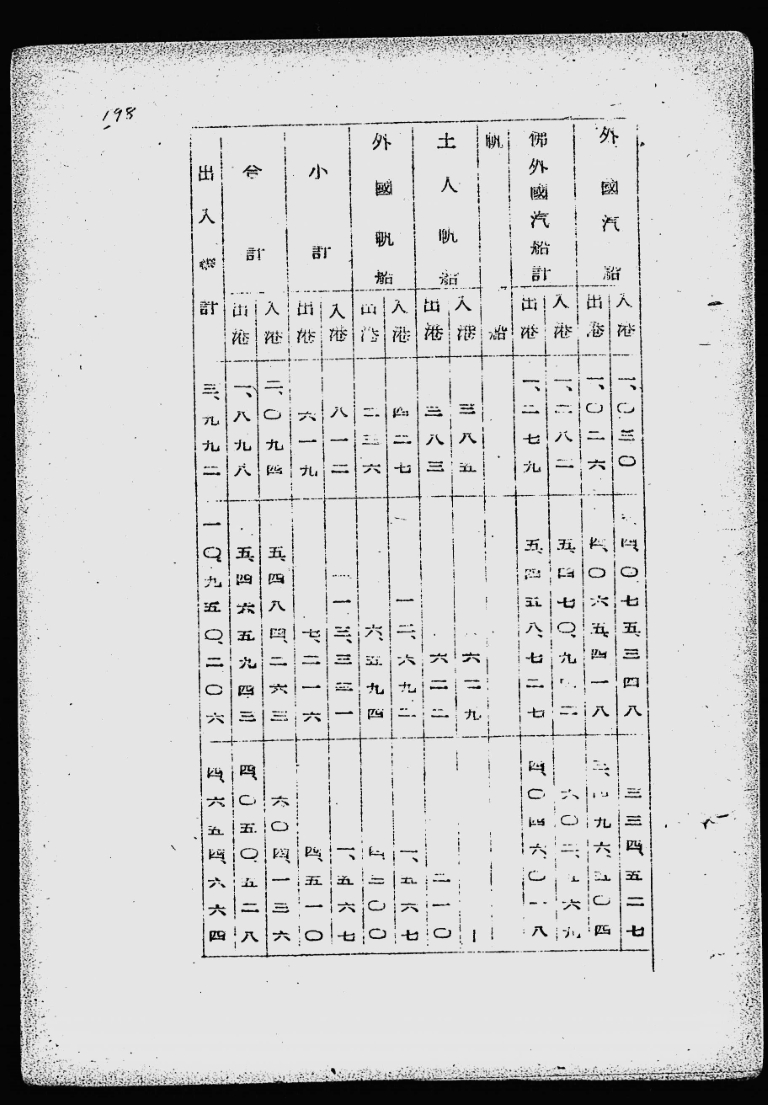 198
外國汽船 入港 一、〇三〇 四、〇七五、三四八 三三四、五二七
出港 一、〇二六 四、〇六五、四一八 三、四九六、五〇四
佛外國汽船計 入港 一、二八二 五、四七〇、九四二 六〇二、五六九
出港 一、二七九 五、四五八、七二七 四、〇四六、〇一八
帆船
土人帆船 入港 三八五 六二九 ー
出港 三八三 六二二 二一〇
外國帆船 入港 四二七 一二、六九二 一、五六七
出港 二三六 六、五九四 四、三〇〇
小計 入港 八一二 一三、三二一 一、五六七
出港 六一九 七、二一六 四、五一〇
合計 入港 二、〇九四 五、四八四、二六三 六〇四、一三六
出港 一、八九八 五、四六五、九四三 四、〇五〇、五二八
出入總計 三、九九二 一〇、九五〇、二〇六 四、六五四、六六四